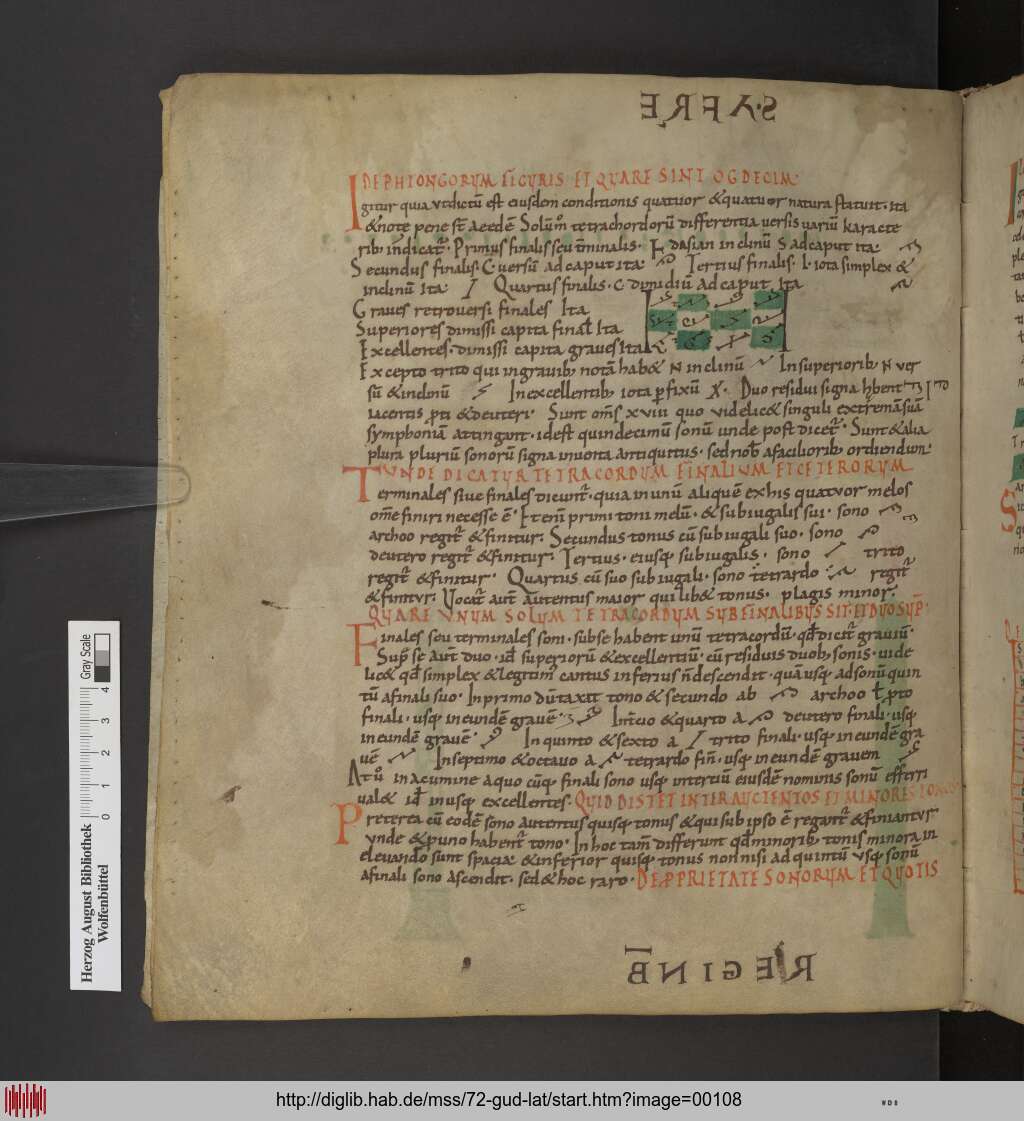 S·AFRE
DE PHTONGORUM FIGURIS ET QUARE SINT OGDECIM
Igitur quia ut dictū est eiusdem conditionis quatuor & quatuor natura statuit· ita
& note pene sr̄ aeedē Solūm° tetrachordorū differentia versis variū karacte
rib; indicat᷒· Primus finalis seu t̄minalis· dasian inclinū S ad caput ita
Secundus finalis· C versū ad caput ita Tertius finalis· I· iota simplex &
inclinū ita Quartus finalis· C dimidiū ad caput ita
Graves retroversi finales Ita
Superiores dimissi capita final̄ Ita
Excellentes· dimissi capita graves ita
Excepto trito qui in gravib; notā hab& N inclinū In superiorib; N ver
sū & inclinū In excellentib; iota p̄fixū X· Duo residui signa hb̄ent
iacentis p̄ti & deuteri· Sunt om̄s xviii quo videlic& singuli extremā suā
symphoniā attingant· id est quindecimū sonū unde post dicet᷒· Sunt & alia
plura pluriū sonorū signa inventa antiquitus· sed nob̄ a facilioribꝰ ordiendum·
UNDE DICATUR TETRACORDUM FINALIUM ET CETERORUM
Terminales sive finales dicunt᷒· quia in unū aliquē ex his quatuor melos
om̄e finiri necesse ē· Etenī primi toni melū· & subiugalis sui· sono
archoo regit᷒ & finitur· Secundus tonus cū subiugali suo· sono
deutero regit᷒ & finitur· Tertius· eiusq; subiugalis· sono trito
regit᷒ & finitur· Quartus cū suo subiugali· sono tetrardo regit᷒
& finitur· Vocat᷒ aut̄ autentus maior quilib& tonus· plagis minor·
QUARE UNUM SOLUM TETRACORDUM SUB FINALIBUS SIT· ET DUO SUP̄·
Finales seu terminales soni· sub se habent unū tetracordū· qđ dicit᷒ graviū·
Sup̄ se aut̄ duo· id̄ superiorū & excellentiū· cū residuis duob; sonis· vide
lic& qđ simplex & legitim᷒ cantus inferius n̄ descendit· quā usq; ad sonū quin
tū a finali suo· In primo dūtaxat tono & secundo ab archoo ł p̄to
finali· usq; in eundē gravē· In t̄tio & quarto a deutero finali· usq;
in eundē gravē· In quinto & sexto a trito finali· usq; in eundē gra
vē In septimo & octavo a tetrardo fin̄· usq; in eundē gravem
At ů in acumine a quo cūq; finali sono usq; in tertiū eiusdē nominis sonū efferri
val& id̄ in usq; excellentes· QUID DISTET INTER AUCIENTOS ET MINORES TONOS
Preterea cū eodē sono autentus quisq; tonus & qui sub ipso ē regant᷒ & finiantur
unde & p uno habent᷒ tono· In hoc tam̄ differunt qđ minorib; tonis minora in
elevando sunt spacia· & inferior quisq; tonus non nisi ad quintū usq; sonū
a finali sono ascendit· sed & hoc raro· DE PPRIETATE SONORUM ET QUOTIS
REGINB̄
Herzog August Bibliothek
Wolfenbüttel
0 1 2 3 4
Gray Scale
http://diglib.hab.de/mss/72-gud-lat/start.htm?image=00108